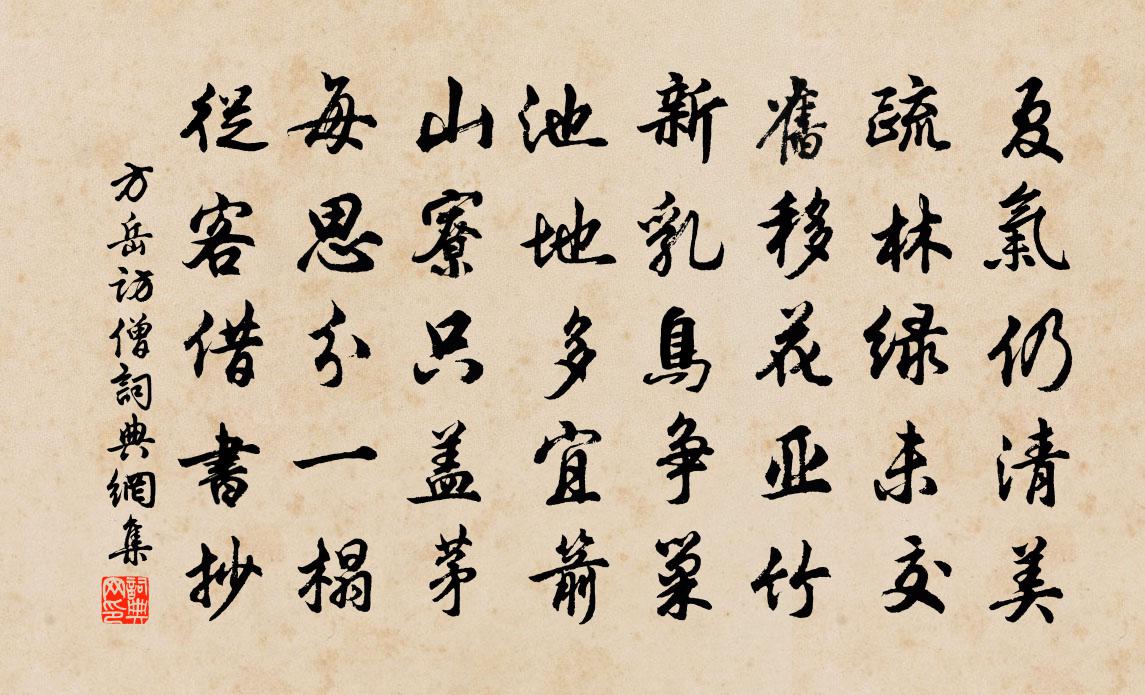 夏氣仍清美
疏林緑未交
舊移花亞竹
新乳鳥爭巢
池地多宜箭
山寮只盖茅
每思分一榻
從客借書抄
方岳訪僧詞典網集
詞典网印